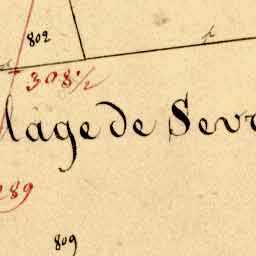 802
308 1/2
lage de Sevr
289
809